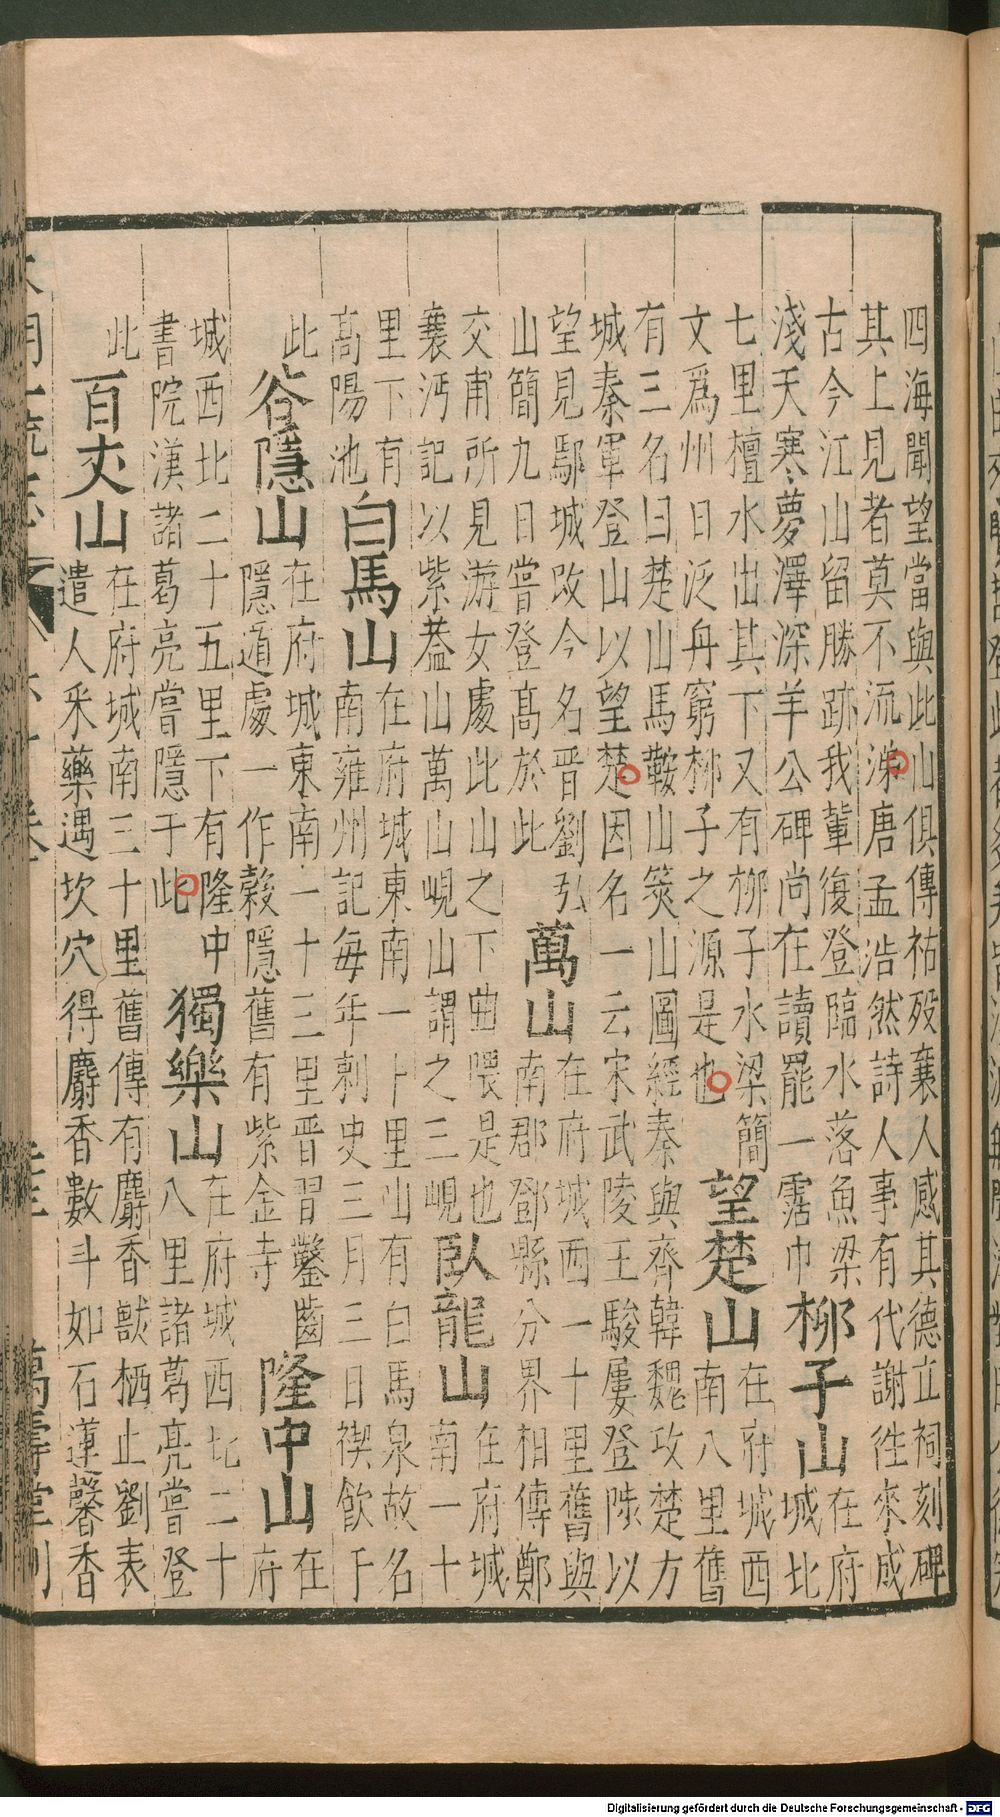 四海聞望當與此山俱傳祜殁襄人感其德立祠刻碑
其上見者莫不流涕唐孟浩然詩人事有代謝徃來成
古今江山留勝跡我輩復登臨水落魚梁
淺天寒夢澤深羊公碑尚在讀罷一霑巾
柳子山
在府
城北
七里檀水出其下又有柳子水梁簡
文爲州日泛舟窮柳子之源是也
望楚山
在府城西
南八里舊
有三名曰楚山馬鞍山筴山圖經秦與齊韓魏攻楚方
城秦軍登山以望楚因名一云宋武陵王駿屢登陟以
望見鄢城改今名晉劉弘
山簡九日嘗登高於此
萬山
在府城西一十里舊與
南郡鄧縣分界相傳鄭
交甫所見游女處此山之下曲隈是也
襄沔記以紫葢山萬山峴山謂之三峴
臥龍山
在府城
南一十
里下有
高陽池
白馬山
在府城東南一十里山有白馬泉故名
南雍州記每年刺史三月三日禊飲于
此
谷隱山
在府城東南一十三里晉習鑿齒
隱遁處一作榖隱舊有紫金寺
隆中山
在
府
城西北二十五里下有隆中
書院漢諸葛亮嘗隱于此
獨樂山
在府城西北二十
八里諸葛亮嘗登
此
百丈山
在府城南三十里舊傳有麝香獸栖止劉表
遣人采藥遇坎穴得麝香數斗如石蓮馨香
萬壽堂刊
Digitalisierung gefördert durch die Deutsche Forschungsgemeinschaft - DFG